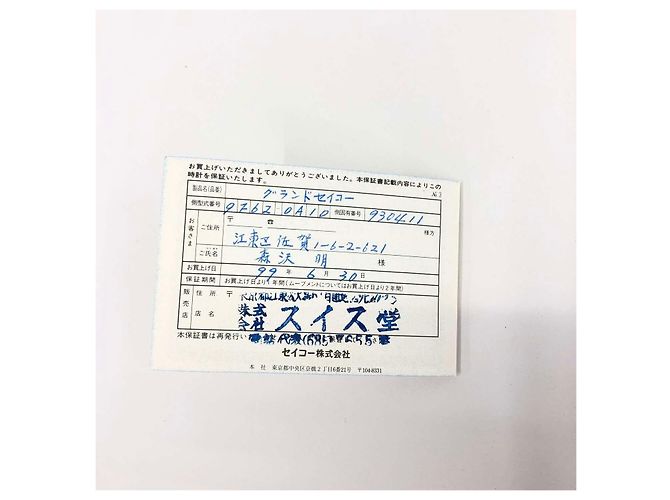 お買上げいただきましてありがとうございました。本保証書記載内容によりこの
時計を保証いたします。
製品名(品番) グランドセイコー
側型式番号 9Z62-0A10 側固有番号 930411
お客さま ご住所 〒 ☎ 様方
江東区佐賀1-6-2-621
ご氏名 森沢 明 様
お買上げ日 99年 6月 30日
保証期間 お買上げ日より1年間(ムーブメントについてはお買上げ日より2年間)
販売店 住所 〒
店名 株式会社 スイス堂
本保証書は再発行い
セイコー株式会社
本社 東京都中央区京橋2丁目6番21号 〒104-8331